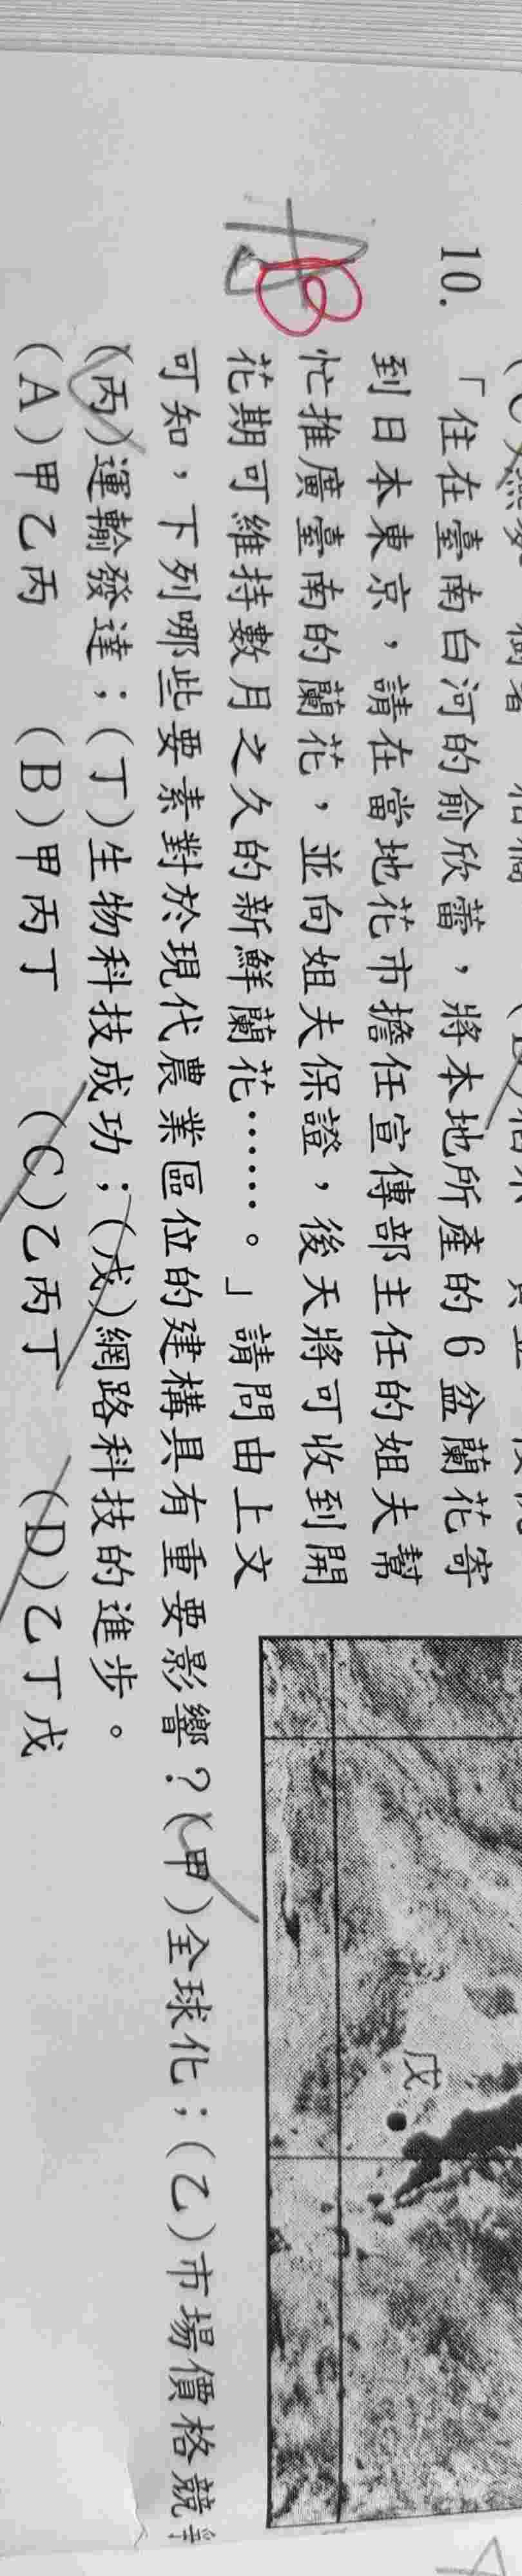 10.「住在臺南白河的俞欣蕾，將本地所產的6盆蘭花寄
到日本東京，請在當地花市擔任宣傳部主任的姐夫幫
忙推廣臺南的蘭花，並向姐夫保證，後天將可收到開
花期可維持數月之久的新鮮蘭花……。」請問由上文
可知，下列哪些要素對於現代農業區位的建構具有重要影響？(甲)全球化；(乙)市場價格競爭
(丙)運輸發達；(丁)生物科技成功；(戊)網路科技的進步。
(A)甲乙丙 (B)甲丙丁 (C)乙丙丁 (D)乙丁戊
B
戊